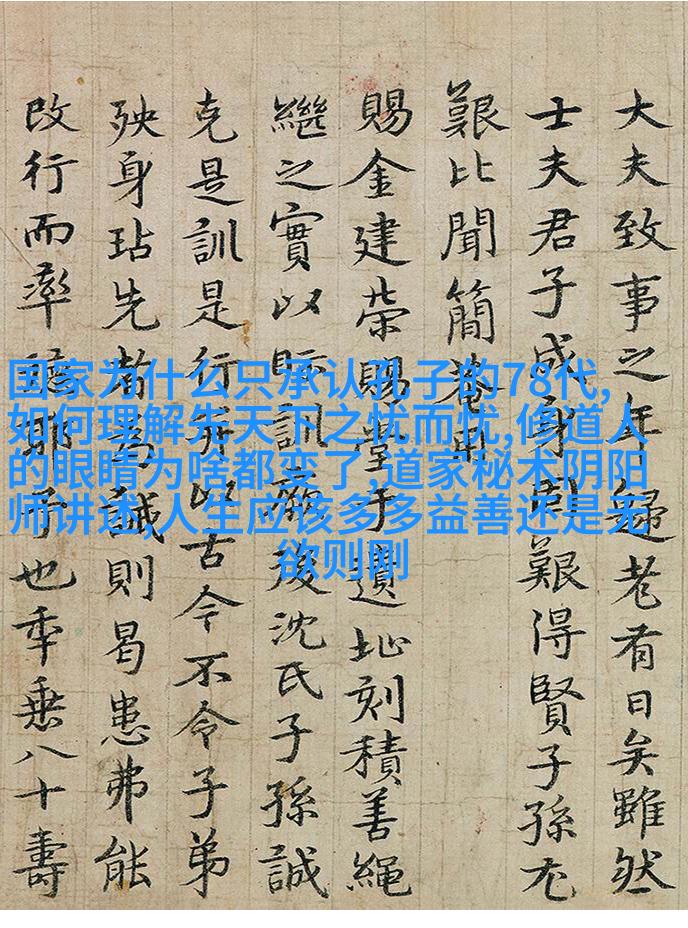 大夫致事之年歸老有日矣雖然
士夫君子成身艱得賢子孫尤
艱比聞簡菴用
賜金建榮賜堂于遺址刻積善繩
繼之實以眎訓厥後沈氏子孫誠
克是訓是行以古今不令子弟
殃身玷先者為誡則曷患弗能
改行而率德耶予也年垂八十壽
国家为什么只承认孔子的78代,
如何理解先天下之忧而忧,修道人
的眼睛为啥都变了,道家秘术阴阳
师讲述,人生应该多多益善还是无
欲则刚